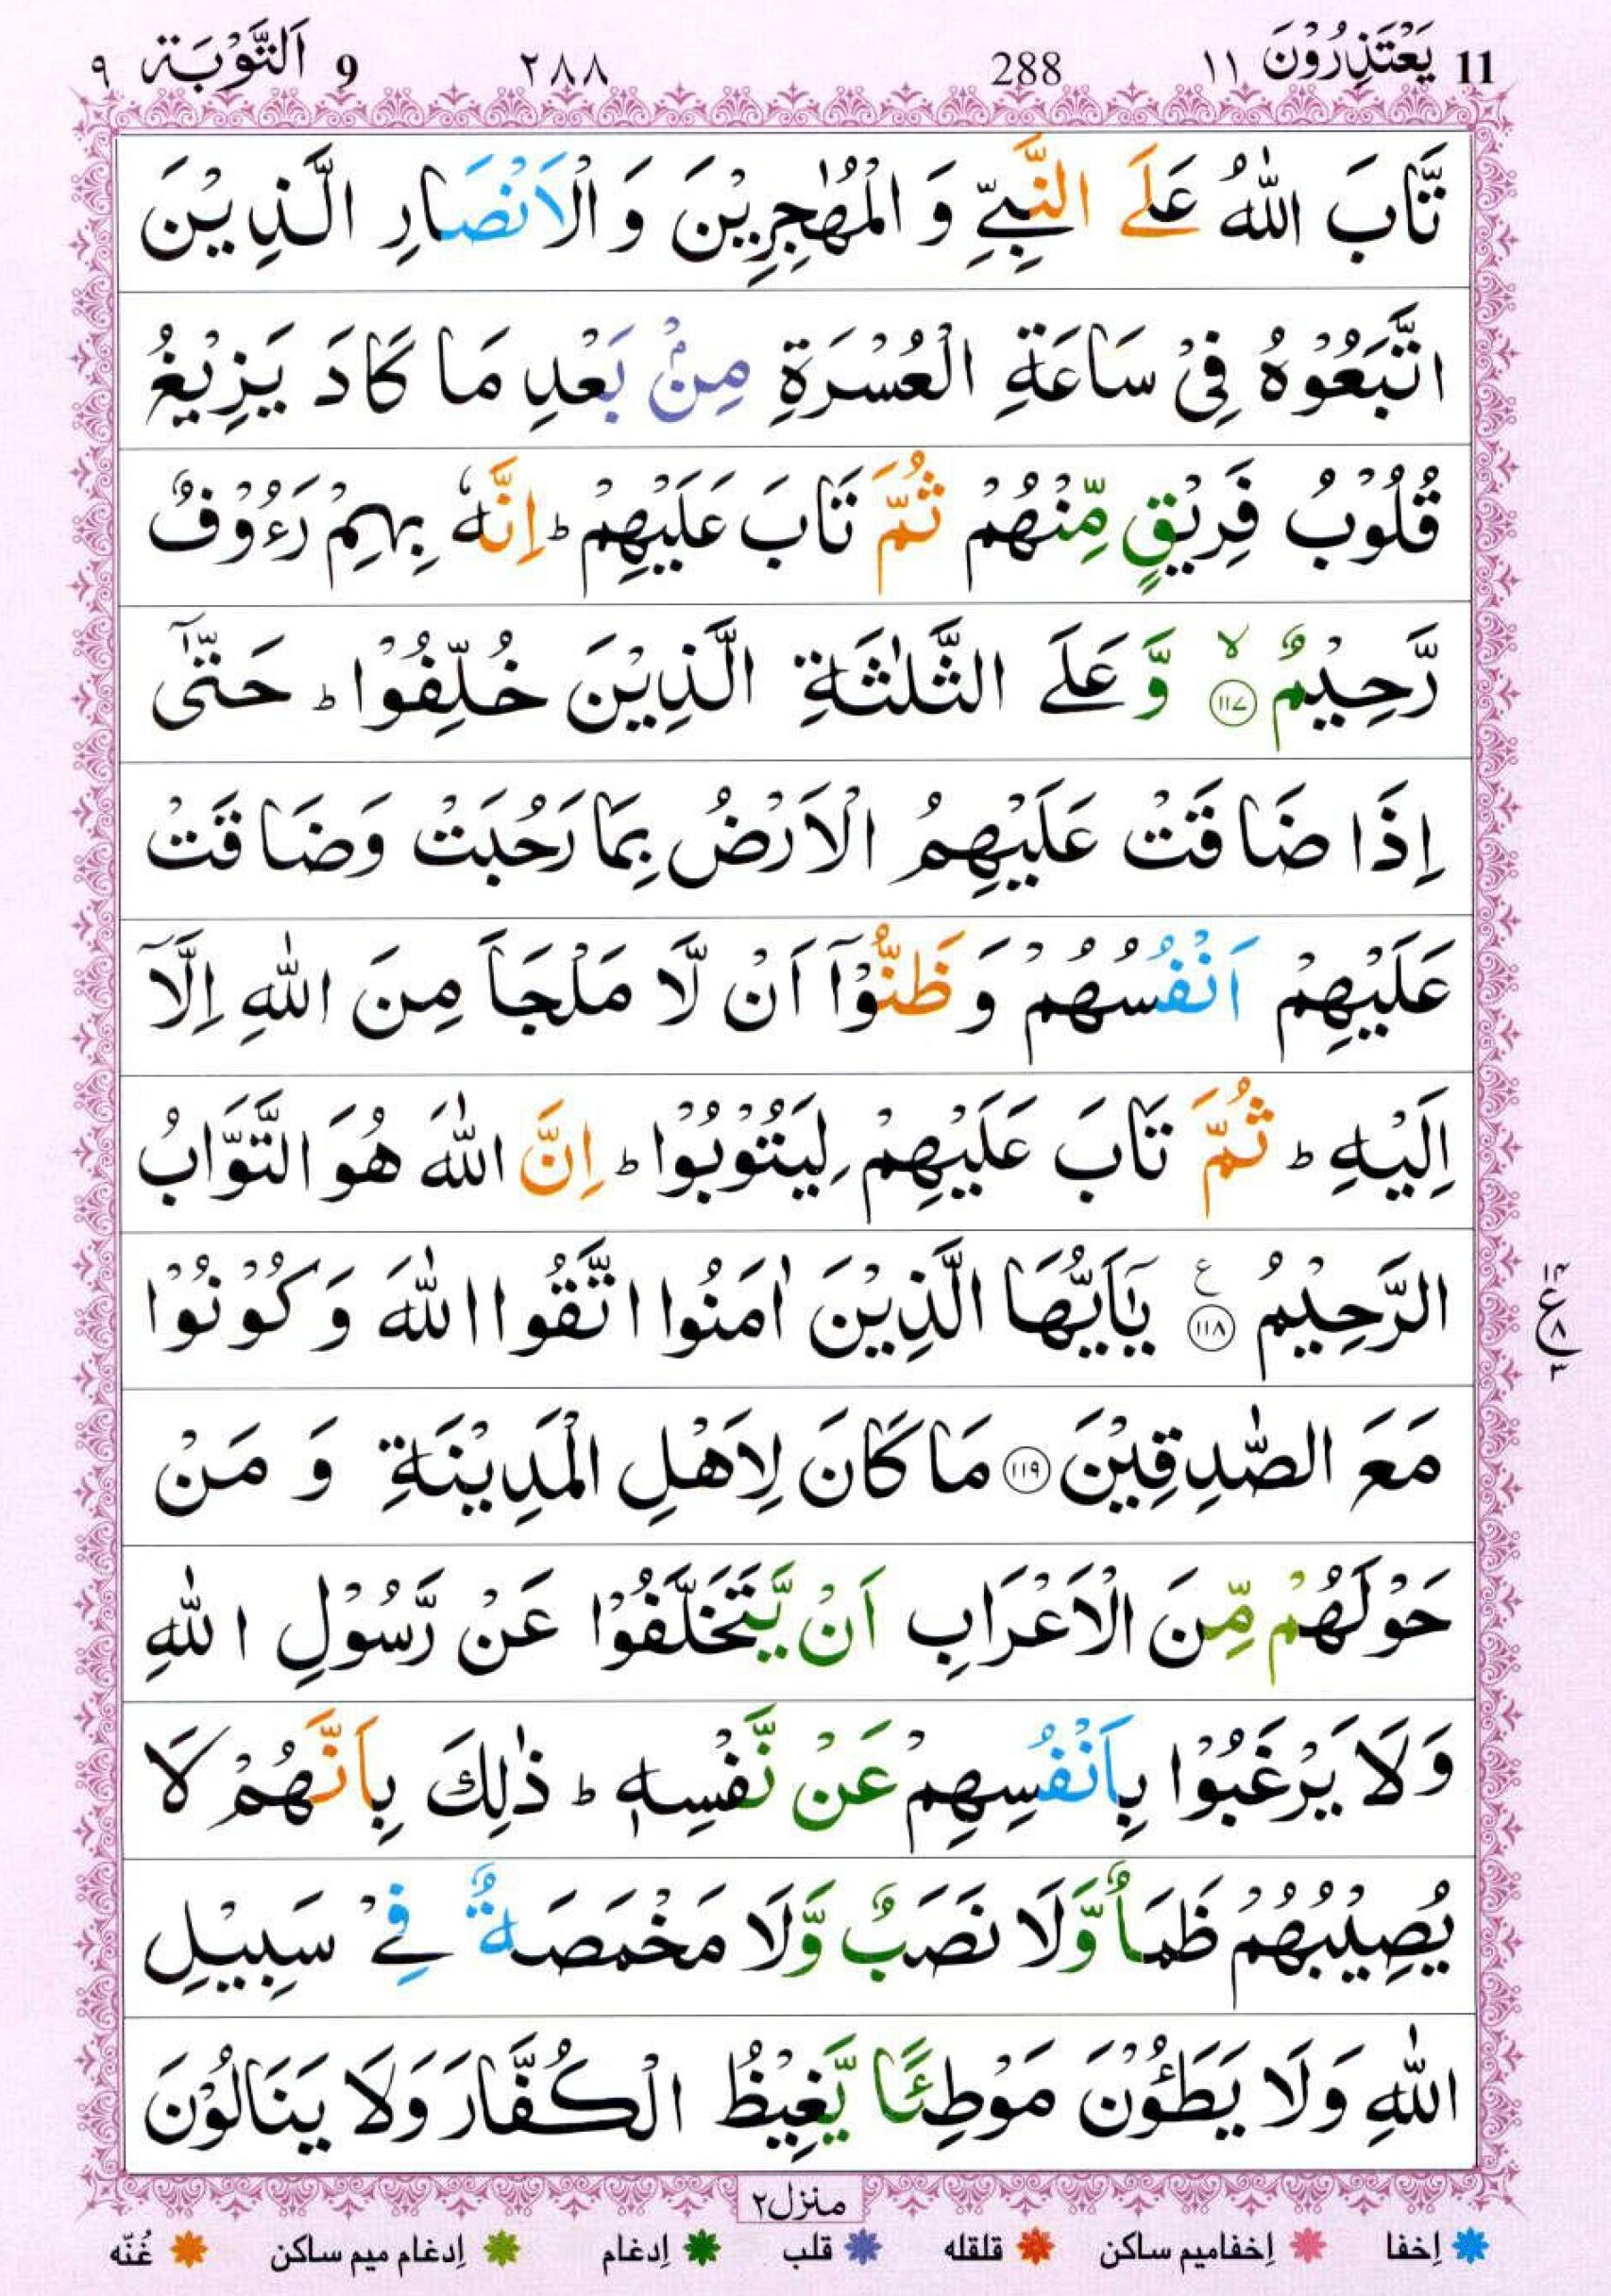 11 يَعْتَذِرُوْنَ ١١ 288 ٢٨٨ 9 اَلتَّوْبَة ٩
تَّابَ اللّٰهُ عَلَى النَّبِيِّ وَ الْمُهٰجِرِيْنَ وَ الْاَنْصَارِ الَّذِيْنَ
اتَّبَعُوْهُ فِيْ سَاعَةِ الْعُسْرَةِ مِنْۢ بَعْدِ مَا كَادَ يَزِيْغُ
قُلُوْبُ فَرِيْقٍ مِّنْهُمْ ثُمَّ تَابَ عَلَيْهِمْ ؕ اِنَّهٗ بِهِمْ رَءُوْفٌ
رَّحِيْمٌ ۙ﴿١١٧﴾ وَّ عَلَى الثَّلٰثَةِ الَّذِيْنَ خُلِّفُوْا ؕ حَتّٰۤى
اِذَا ضَاقَتْ عَلَيْهِمُ الْاَرْضُ بِمَا رَحُبَتْ وَضَاقَتْ
عَلَيْهِمْ اَنْفُسُهُمْ وَ ظَنُّوْۤا اَنْ لَّا مَلْجَاَ مِنَ اللّٰهِ اِلَّاۤ
اِلَيْهِ ؕ ثُمَّ تَابَ عَلَيْهِمْ لِيَتُوْبُوْا ؕ اِنَّ اللّٰهَ هُوَ التَّوَّابُ
الرَّحِيْمُ ﴿١١٨﴾ ع يٰۤاَيُّهَا الَّذِيْنَ اٰمَنُوا اتَّقُوا اللّٰهَ وَ كُوْنُوْا
١٤ ع ٨ ٣
مَعَ الصّٰدِقِيْنَ ﴿١١٩﴾ مَا كَانَ لِاَهْلِ الْمَدِيْنَةِ وَ مَنْ
حَوْلَهُمْ مِّنَ الْاَعْرَابِ اَنْ يَّتَخَلَّفُوْا عَنْ رَّسُوْلِ اللّٰهِ
وَلَا يَرْغَبُوْا بِاَنْفُسِهِمْ عَنْ نَّفْسِهٖ ؕ ذٰلِكَ بِاَنَّهُمْ لَا
يُصِيْبُهُمْ ظَمَاٌ وَّلَا نَصَبٌ وَّلَا مَخْمَصَةٌ فِيْ سَبِيْلِ
اللّٰهِ وَلَا يَطَـُٔوْنَ مَوْطِئًا يَّغِيْظُ الْكُفَّارَ وَلَا يَنَالُوْنَ
منزل٢
اِخفا اِخفامیم ساکن قلقله قلب اِدغام اِدغام میم ساکن غُنّه